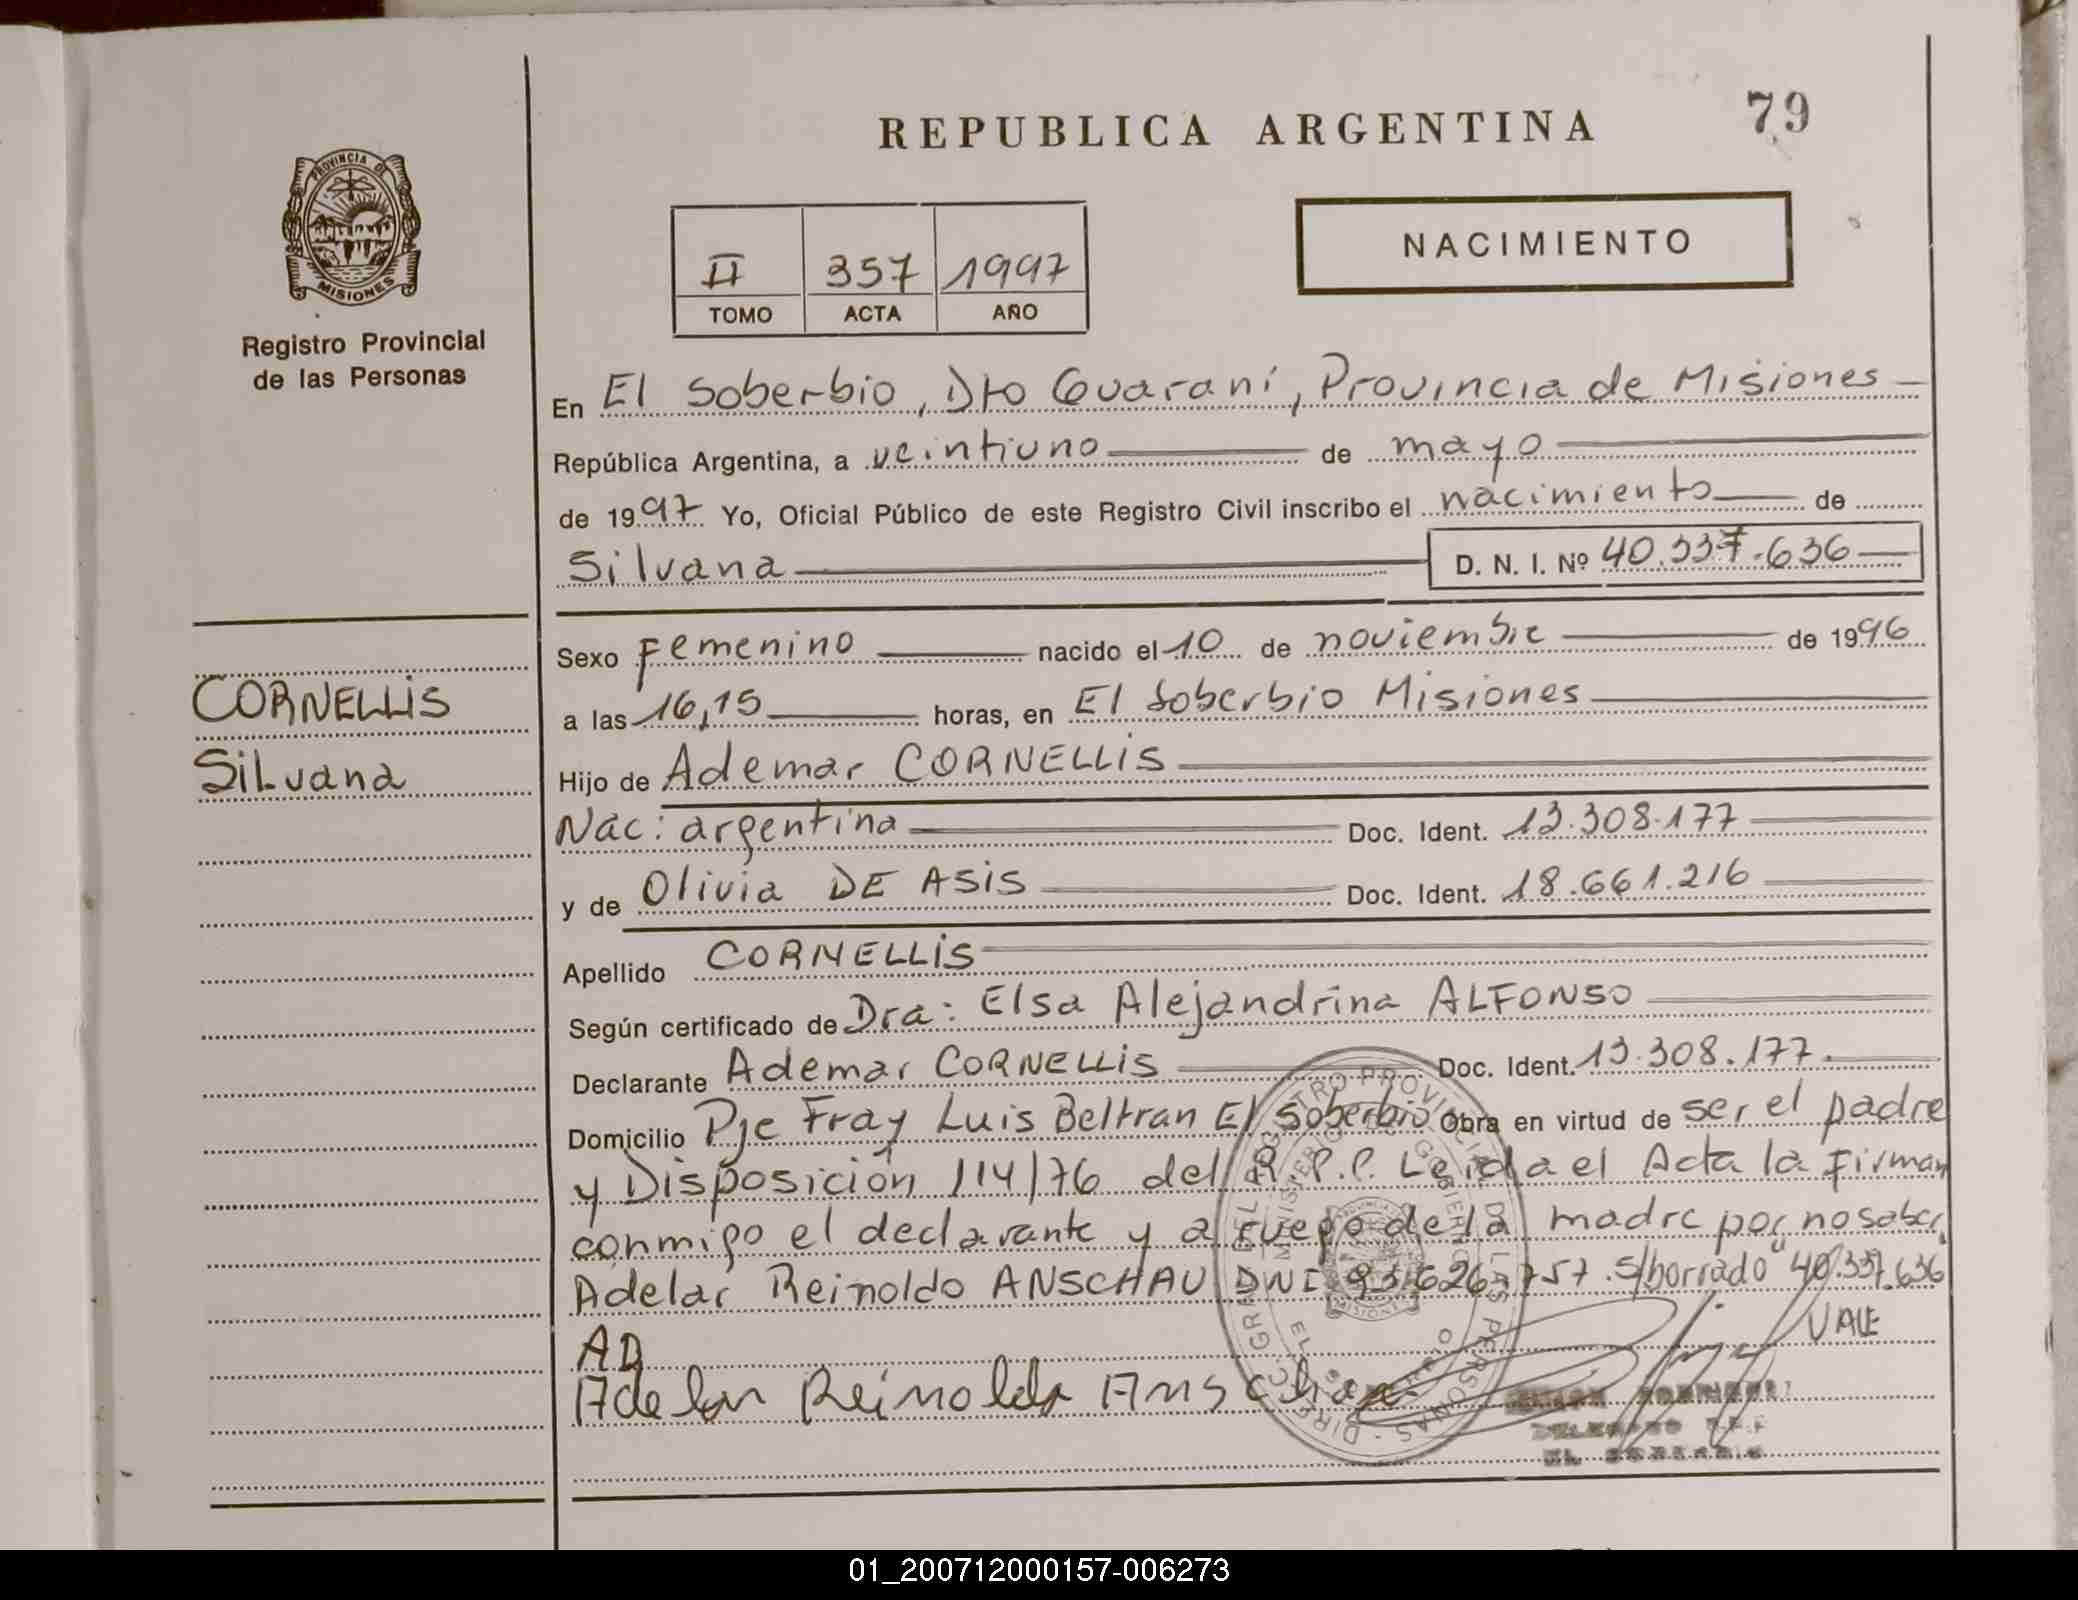 REPUBLICA ARGENTINA
79
PROVINCIA DE MISIONES
Registro Provincial
de las Personas
II 357 1997
TOMO ACTA AÑO
NACIMIENTO
En El Soberbio, Dto Guaraní, Provincia de Misiones
República Argentina, a veintiuno de mayo
de 1997 Yo, Oficial Público de este Registro Civil inscribo el nacimiento de
Silvana D. N. I. Nº 40.337.636
CORNELLIS
Silvana
Sexo Femenino nacido el 10 de noviembre de 1996
a las 16,15 horas, en El Soberbio Misiones
Hijo de Ademar CORNELLIS
Nac: argentina Doc. Ident. 13.308.177
y de Olivia DE ASIS Doc. Ident. 18.661.216
Apellido CORNELLIS
Según certificado de Dra: Elsa Alejandrina ALFONSO
Declarante Ademar CORNELLIS Doc. Ident. 13.308.177.
Domicilio Pje Fray Luis Beltran El Soberbio Obra en virtud de ser el padre
y Disposición 114/76 del R.P.P. Leida el Acta la firman
conmigo el declarante y a ruego de la madre por no saber
Adelar Reinoldo ANSCHAU DNI 626.757. S/borrado "40.337.636"
VALE
AD
Adelar Reinoldo Anschau
EL SOBERBIO
01_200712000157-006273